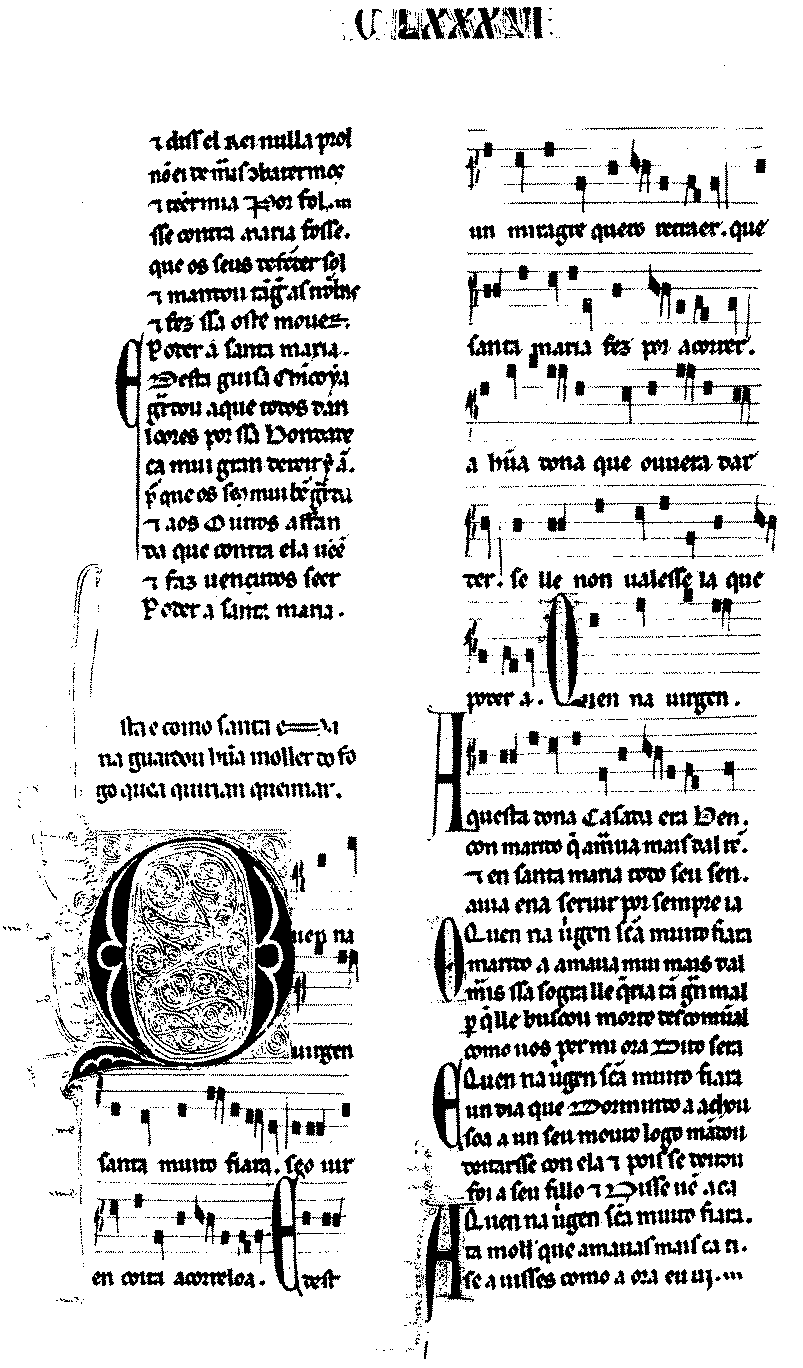 C LXXXVI
⁊ diss el Rei nulla prol
⁊ por fol
sse contra maria fosse.
que os seus
⁊ mandou
⁊ fez ssa oste mouer.
Poder á santa maria.
Desta guisa
aque todos dan
loores por ssa bondade
ca mui gran
⁊ aos Outros affan
da que contra ela
⁊ faz uençudos seer
Poder a santa maria.
sta e como santa
na guardou hũa moller do fo
go quea quirian queimar.
Quen na
uirgen
santa muito fiara. seo uir
en coita acorreloa. E dest
un miragre quero retraer. que
santa maria fez por acorrer.
a hũa dona que ouuera dar
der. se lle non ualesse la que
poder a. Quen na uirgen.
Aquesta dona Casada era ben.
con marido q̃ amaua mais dal rẽ.
⁊ en santa maria todo seu sen.
auia ena seruir por sempre ia
Quen na uĩgen scã muito fiara
O marido a amaua mui mais dal
mais ssa sogra lle q̃ria tã grã mal
p̱ q̃lle buscou morte descomũal
como uos per mi ora Dito sera
Quen na uĩgen scã muito fiara
E un dia que Dormindo a achou
soa a un seu mouro logo mãdou
deitarsse con ela ⁊ pois se deitou
foi a seu fillo ⁊ Disse uẽ aca
Quen na uĩgen scã muito fiara.
A ta moll' que amauas mais ca ti.
se a uisses como a ora eu ui.